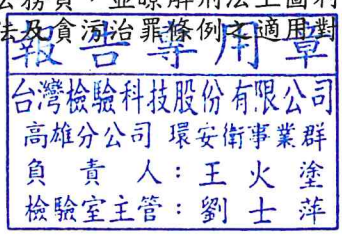 法務員，並瞭解刑法上圖利
法及貪污治罪條例之適用對
報告專用章
台灣檢驗科技股份有限公司
高雄分公司 環安衛事業群
負責人：王火塗
檢驗室主管：劉士萍